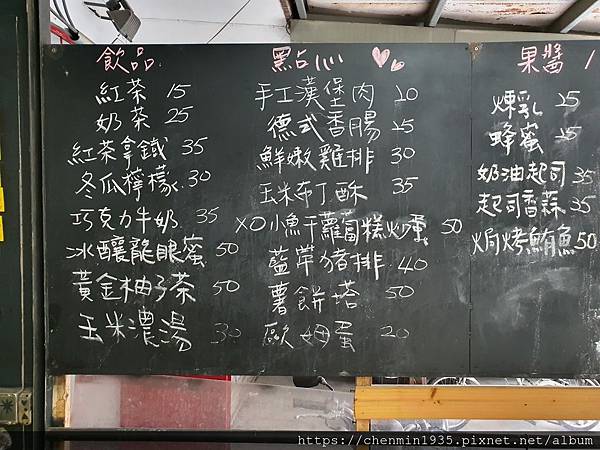 飲品
紅茶 15
奶茶 25
紅茶拿鐵 35
冬瓜檸檬 30
巧克力牛奶 35
冰釀龍眼蜜 50
黃金柚子茶 50
玉米濃湯 30
點心
手工漢堡肉 20
德式香腸 25
鮮嫩雞排 30
玉米布丁酥 35
XO小魚干蘿蔔糕炒蛋 50
藍帶豬排 40
薯餅塔 50
歐姆蛋 20
果醬
煉乳 25
蜂蜜 25
奶油起司 35
起司香蒜 35
焗烤鮪魚 50
https://chenmin1935.pixnet.net/album